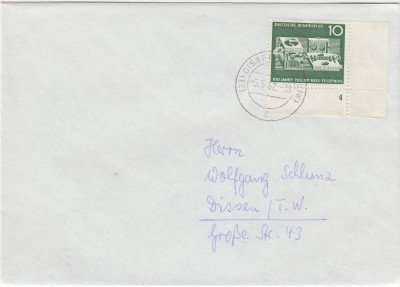 DEUTSCHE BUNDESPOST
10
100 JAHRE PHILIPP-REIS-TELEPHON
4
(23) DISSEN
-9.5.62.-19
a
Herrn
Wolfgang Schlenz
Dissen / T.W.
Große Str. 43